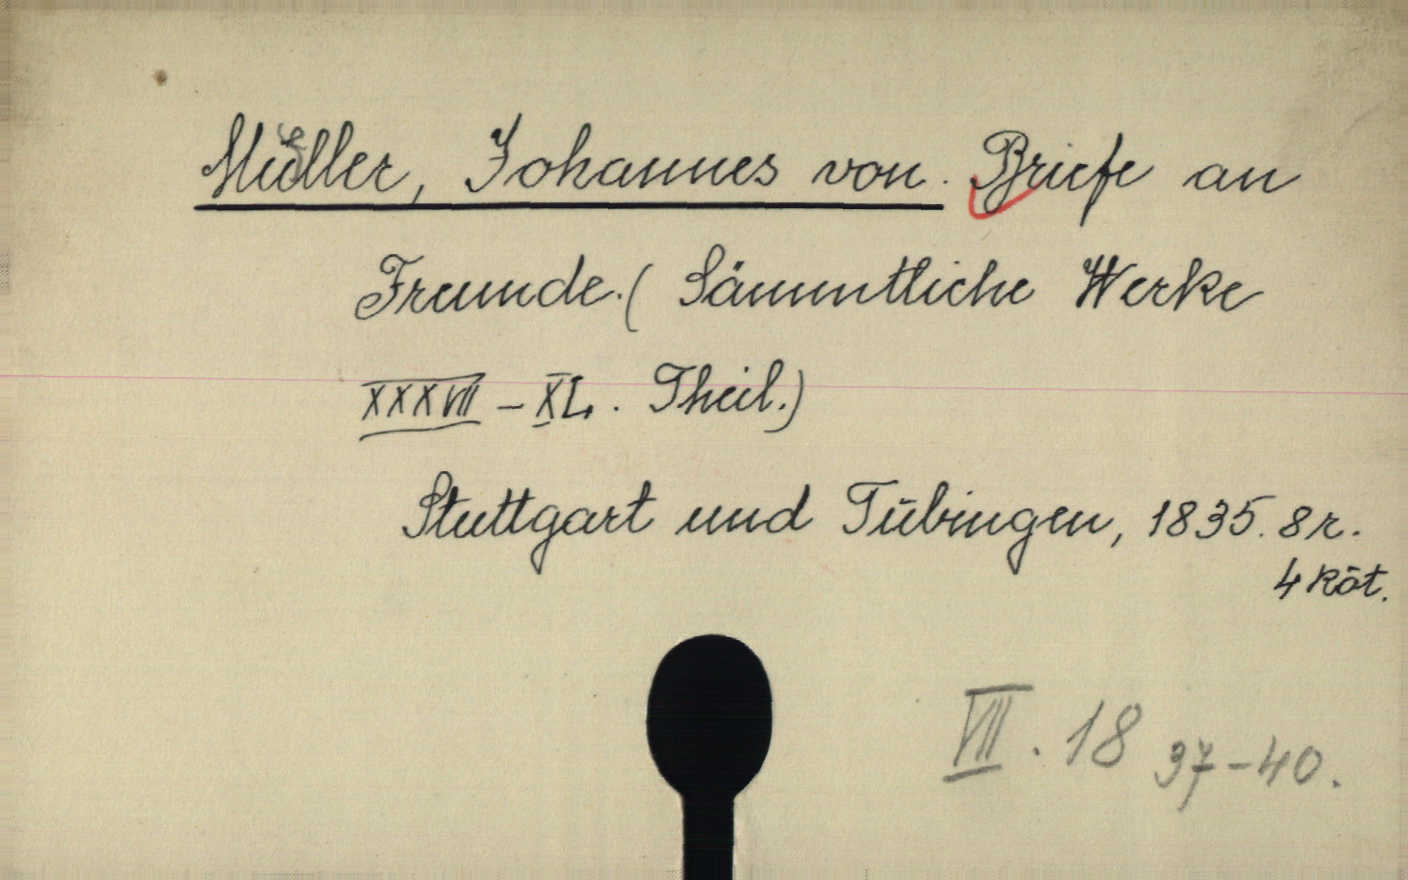 Müller, Johannes von. Briefe an
Freunde. (Sämmtliche Werke
XXXVII – XL. Theil.)
Stuttgart und Tübingen, 1835. 8r.
4 köt.
VII. 18 37-40.